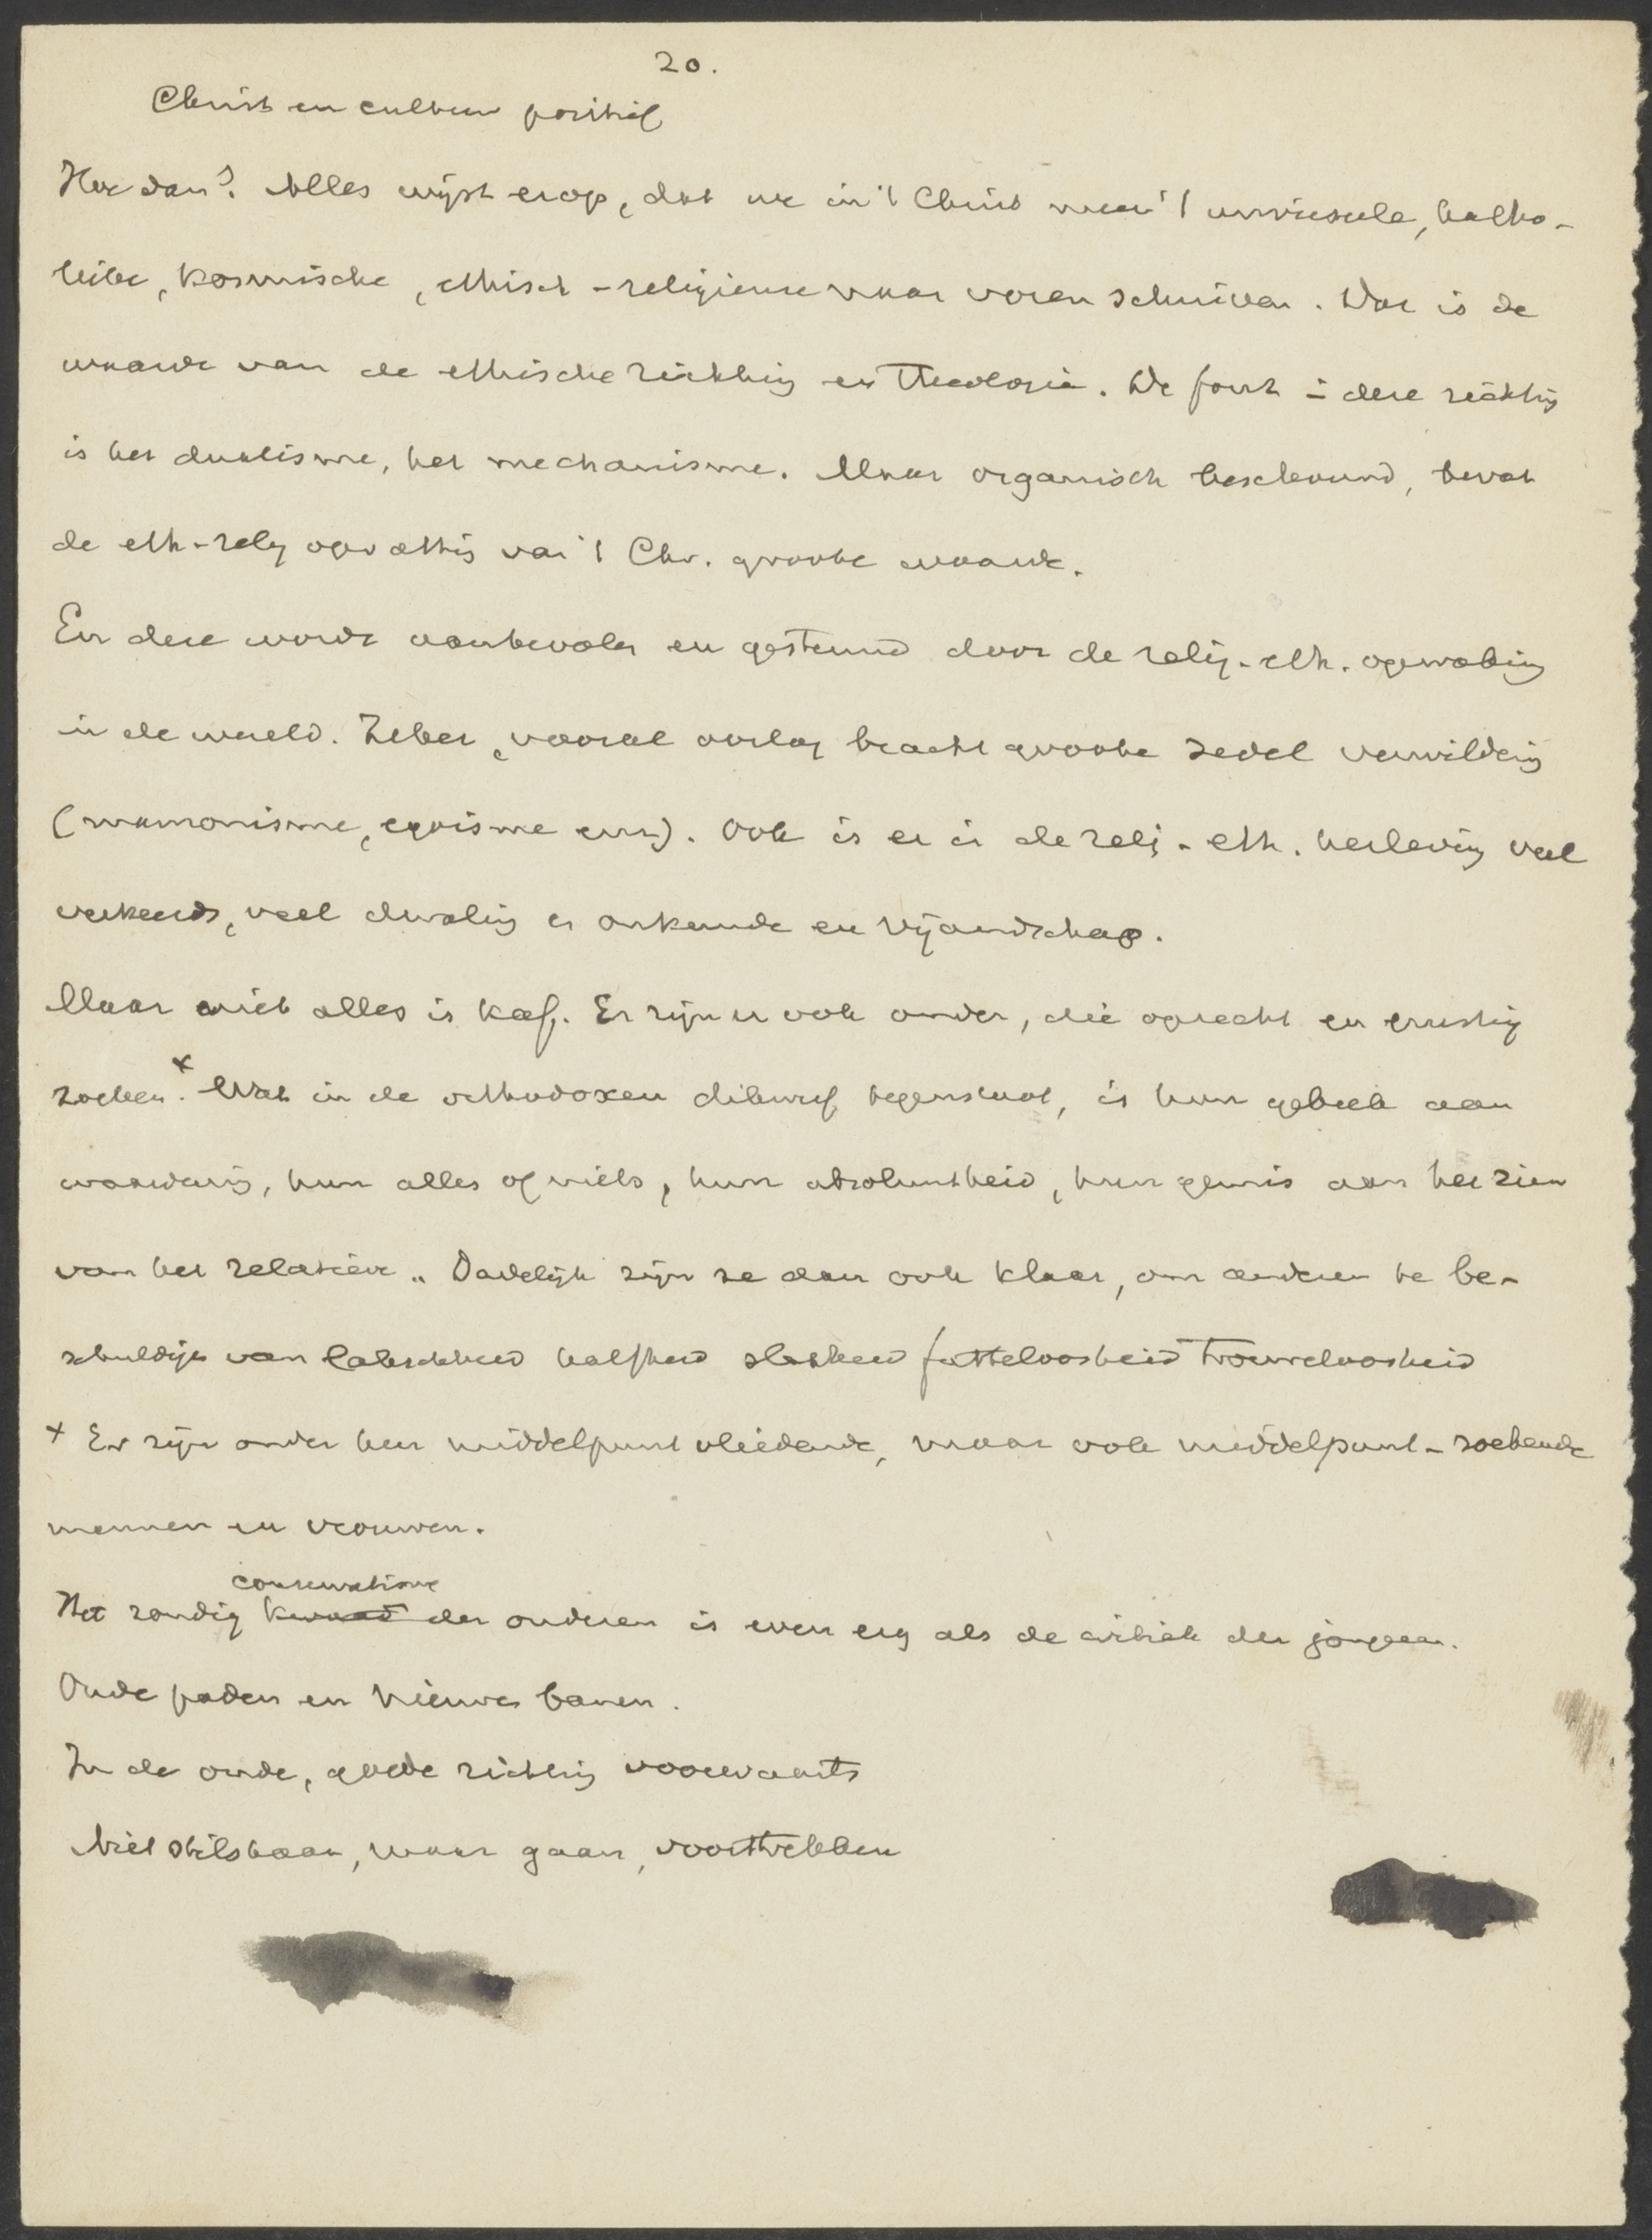 20.
Christ en cultuur positief
Hoe dan? Alles wijst erop, dat we in 't Christ meer 't universeele, katho-
lieke, kosmische, ethisch-religieuse naar voren schuiven. Dat is de
waarde van de ethische richting en Theologie. De fout in deze richting
is het dualisme, het mechanisme. Maar organisch beschouwd, bevat
de eth-relig opvatting van 't Chr. groote waarde.
En deze wordt aanbevolen en gesteund door de relig-eth. opwaking
in de wereld. Zeker, vooral oorlog bracht groote zedel verwildering
(mammonisme, egoisme enz). Ook is er in de relig-eth. herleving veel
verkeerds, veel dwaling en onkunde en vijandschap.
Maar niet alles is kaf. Er zijn er ook onder, die oprecht en ernstig
zoeken.× Wat in de orthodoxen dikwerf tegenstaat, is hun gebrek aan
waardering, hun alles of niets, hun absoluutheid, hun gemis aan het zien
van het relatieve. Dadelijk zijn ze dan ook klaar, om anderen te be-
schuldigen van lakschheid halfheid slapheid futteloosheid trouweloosheid
× Er zijn onder hen middelpuntvliedende, maar ook middelpunt-zoekende
mannen en vrouwen.
conservatisme
Het zondig kwaad der ouderen is even erg als de critiek der jongeren.
Oude paden en nieuwe banen.
In de oude, goede richting voorwaarts
Niet stilstaan, maar gaan, voorttrekken